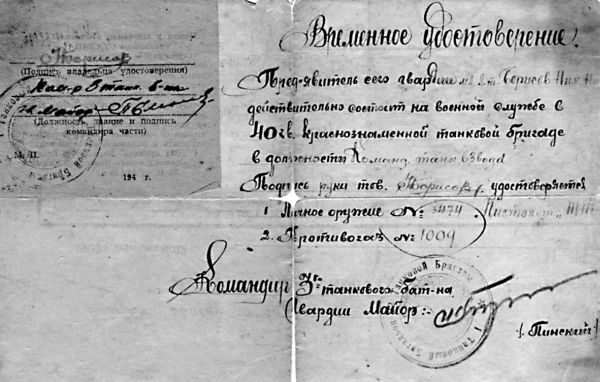 Борисов
(Подпись владельца удостоверения)
Ком-р 3 танк. б-на
гв. майор
(Должность, звание и подпись
командира части)
М. П.
194 г.
Временное удостоверение.
Предъявитель сего гвардии мл. л-т. Борисов
действительно состоит на военной службе в
40 гв. Краснознаменной танковой бригаде
в должности Команд. танк взвода
Подпись руки тов. Борисов удостоверяется
1 Личное оружие № 3474 Пистолет „ТТ"
2. Противогаз № 1009
Командир 3го танкового бат-на
Гвардии Майор:-
(Пинский)